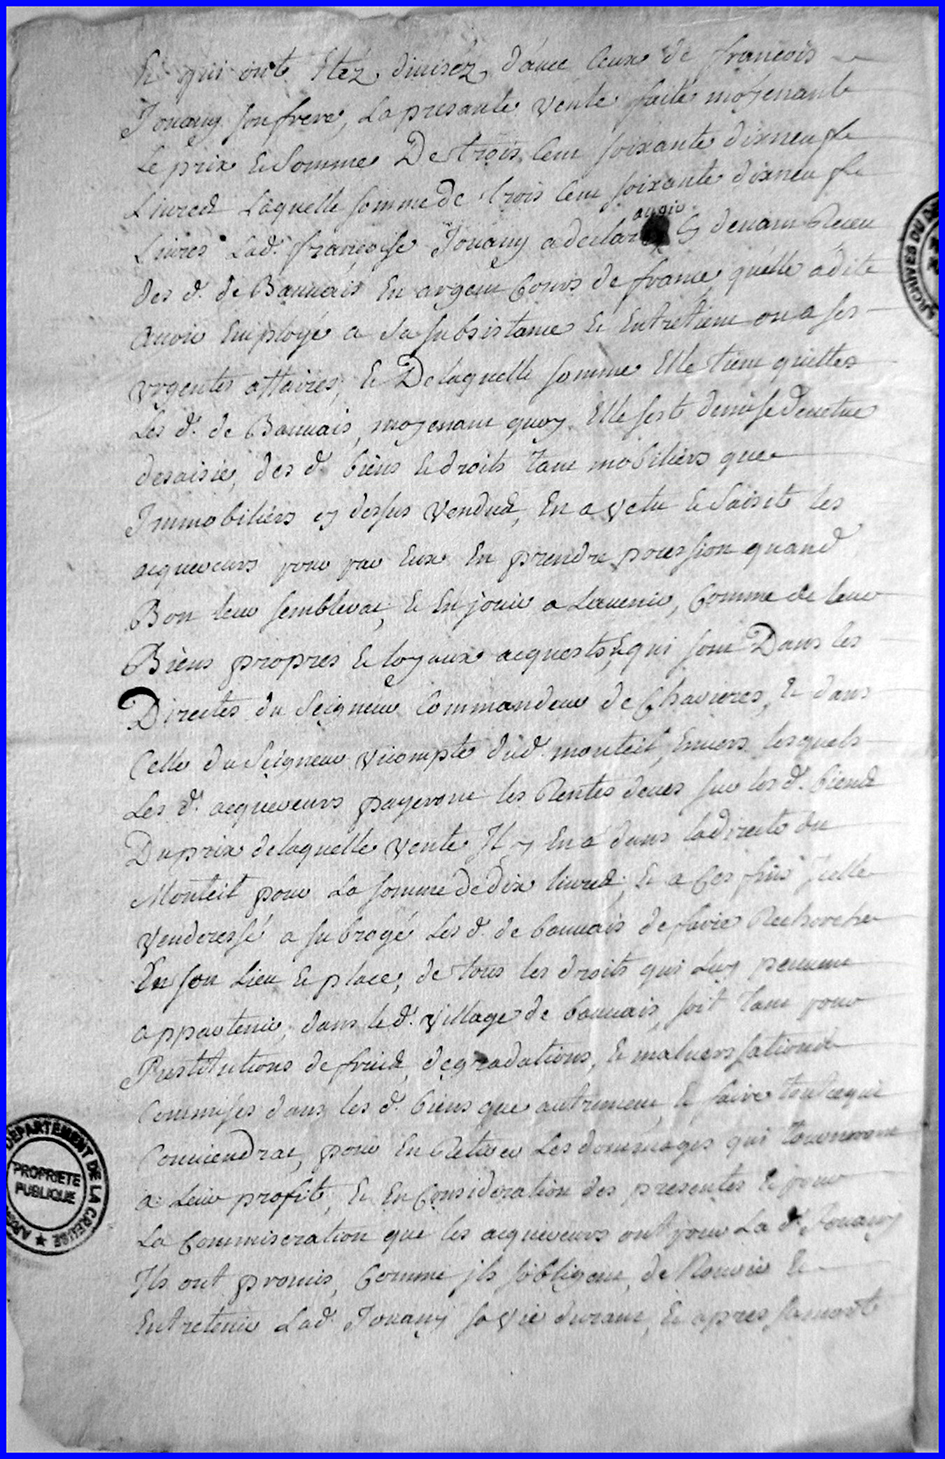 Et qui ont Etéz divisez d'avec ceux de francois
Jouany son frere, La presante vente faite moyenant
Le prix et Somme De trois Cent soixante dixneuf
Livres Laquelle somme de trois Cent soixante dixneuf
Livres Lad. francoise Jouany a declaré avoir Cy devant Receu
Des d. de Banvais En argent Cours de france, quelle a dite
avoir Employé a sa subsistance Et Entretient ou a ses
urgentes affaires, Et De laquelle somme Elle tient quittes
Les d. de Banvais, moyenant quoy Elle sest demise devetue
desaisie, des d. biens Et droits tant mobiliers que
Immobiliers cy dessus Vendus, En a vetu Et Saisit les
acquereurs pour par Eux En prendre possession quand
Bon leur semblerat, Et En jouir a L'avenir, Comme de leur
Biens propres Et loyaux acquests, Et qui sont Dans les
Directes du Seigneur Commandeur de Chavieres, Et dans
Celle du Seigneur Vicompte dud. monteil, Envers lesquels
Les d. acquereurs payeront les Rentes deues sur les d. biens
Du prix de laquelle vente Il y En a dans la directe du
Monteil pour La somme de dix livres; Et a Ces fins Icelle
Venderesse a subrogé Les d. de banvais de faire Recherche
En son Lieu Et place, de tous les droits qui Luy peuvent
appartenir, dans le d. village de banvais, soit tant pour
Restitutions de fruit, degradations, Et malversations
Commises dans les d. biens que autrement, Et faire tout ce qui
Conviendrat, pour En Retirer Les dommages qui tourneront
a Leur profit, Et En Consideration des presentes Et pour
La Commiseration que les acquereurs ont pour La d. Jouany
Ils ont promis, Comme ils s'obligent, de Nourir Et
Entretenir Lad. Jouany sa vie durant, Et apres sa mort
ARCHIVES DU
DEPARTEMENT DE LA CREUSE
PROPRIETE
PUBLIQUE